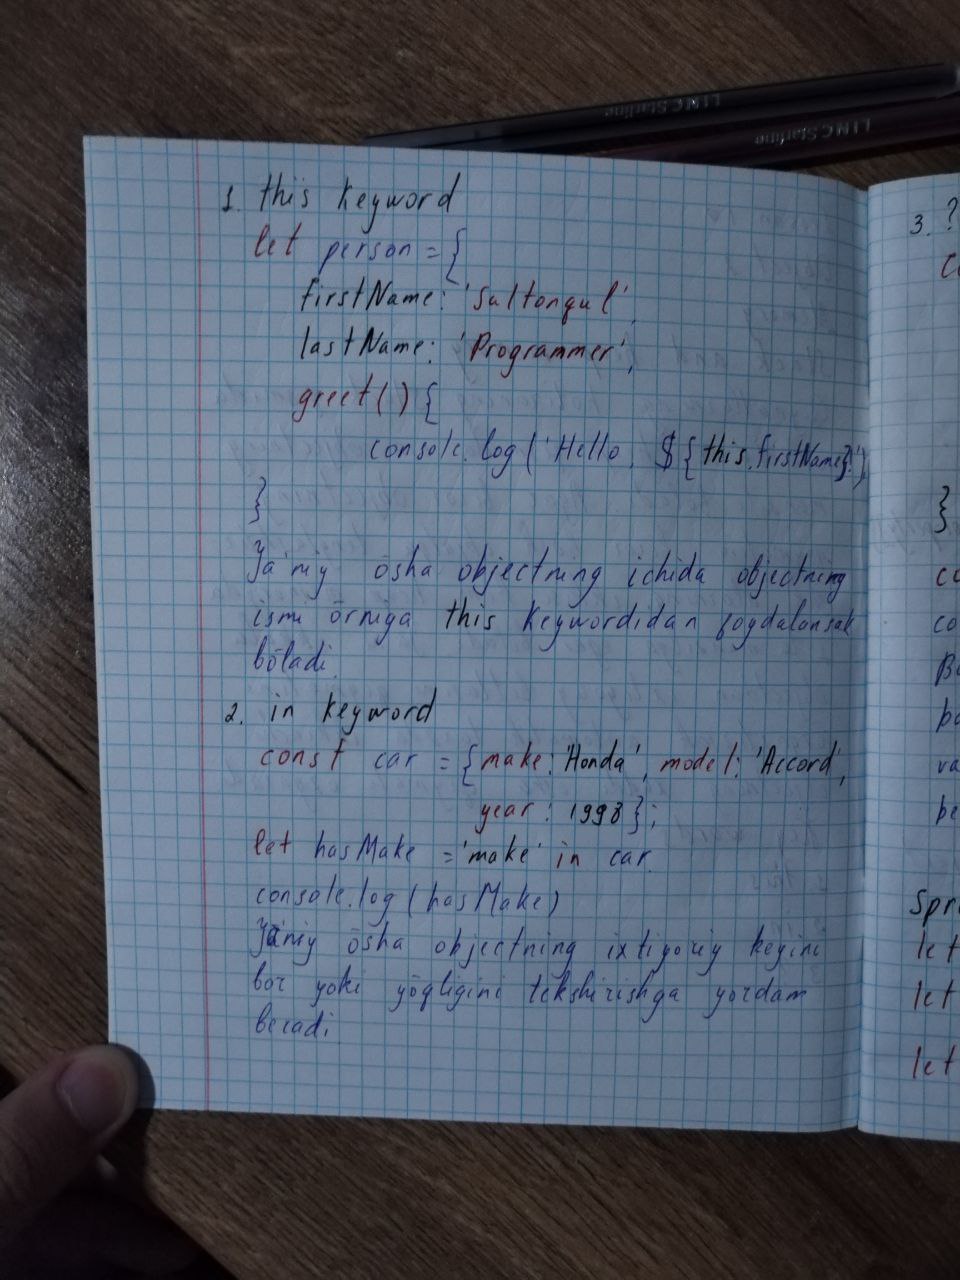 LINC Starline
LINC Starline
1. this keyword
let person = {
firstName: 'Sultonqul',
lastName: 'Programmer',
greet() {
console.log('Hello, ${this.firstName}!')
}
Ya'niy ōsha objectning ichida objectning
ismi ōrniga this keywordidan foydalansak
bōladi.
2. in keyword
const car = {make: 'Honda', model: 'Accord',
year: 1998};
let hasMake = 'make' in car.
console.log(hasMake)
Ya'niy ōsha objectning ixtiyoriy keyini
bor yoki yōqligini tekshirishga yordam
beradi.
3. ?
}
let
let
let